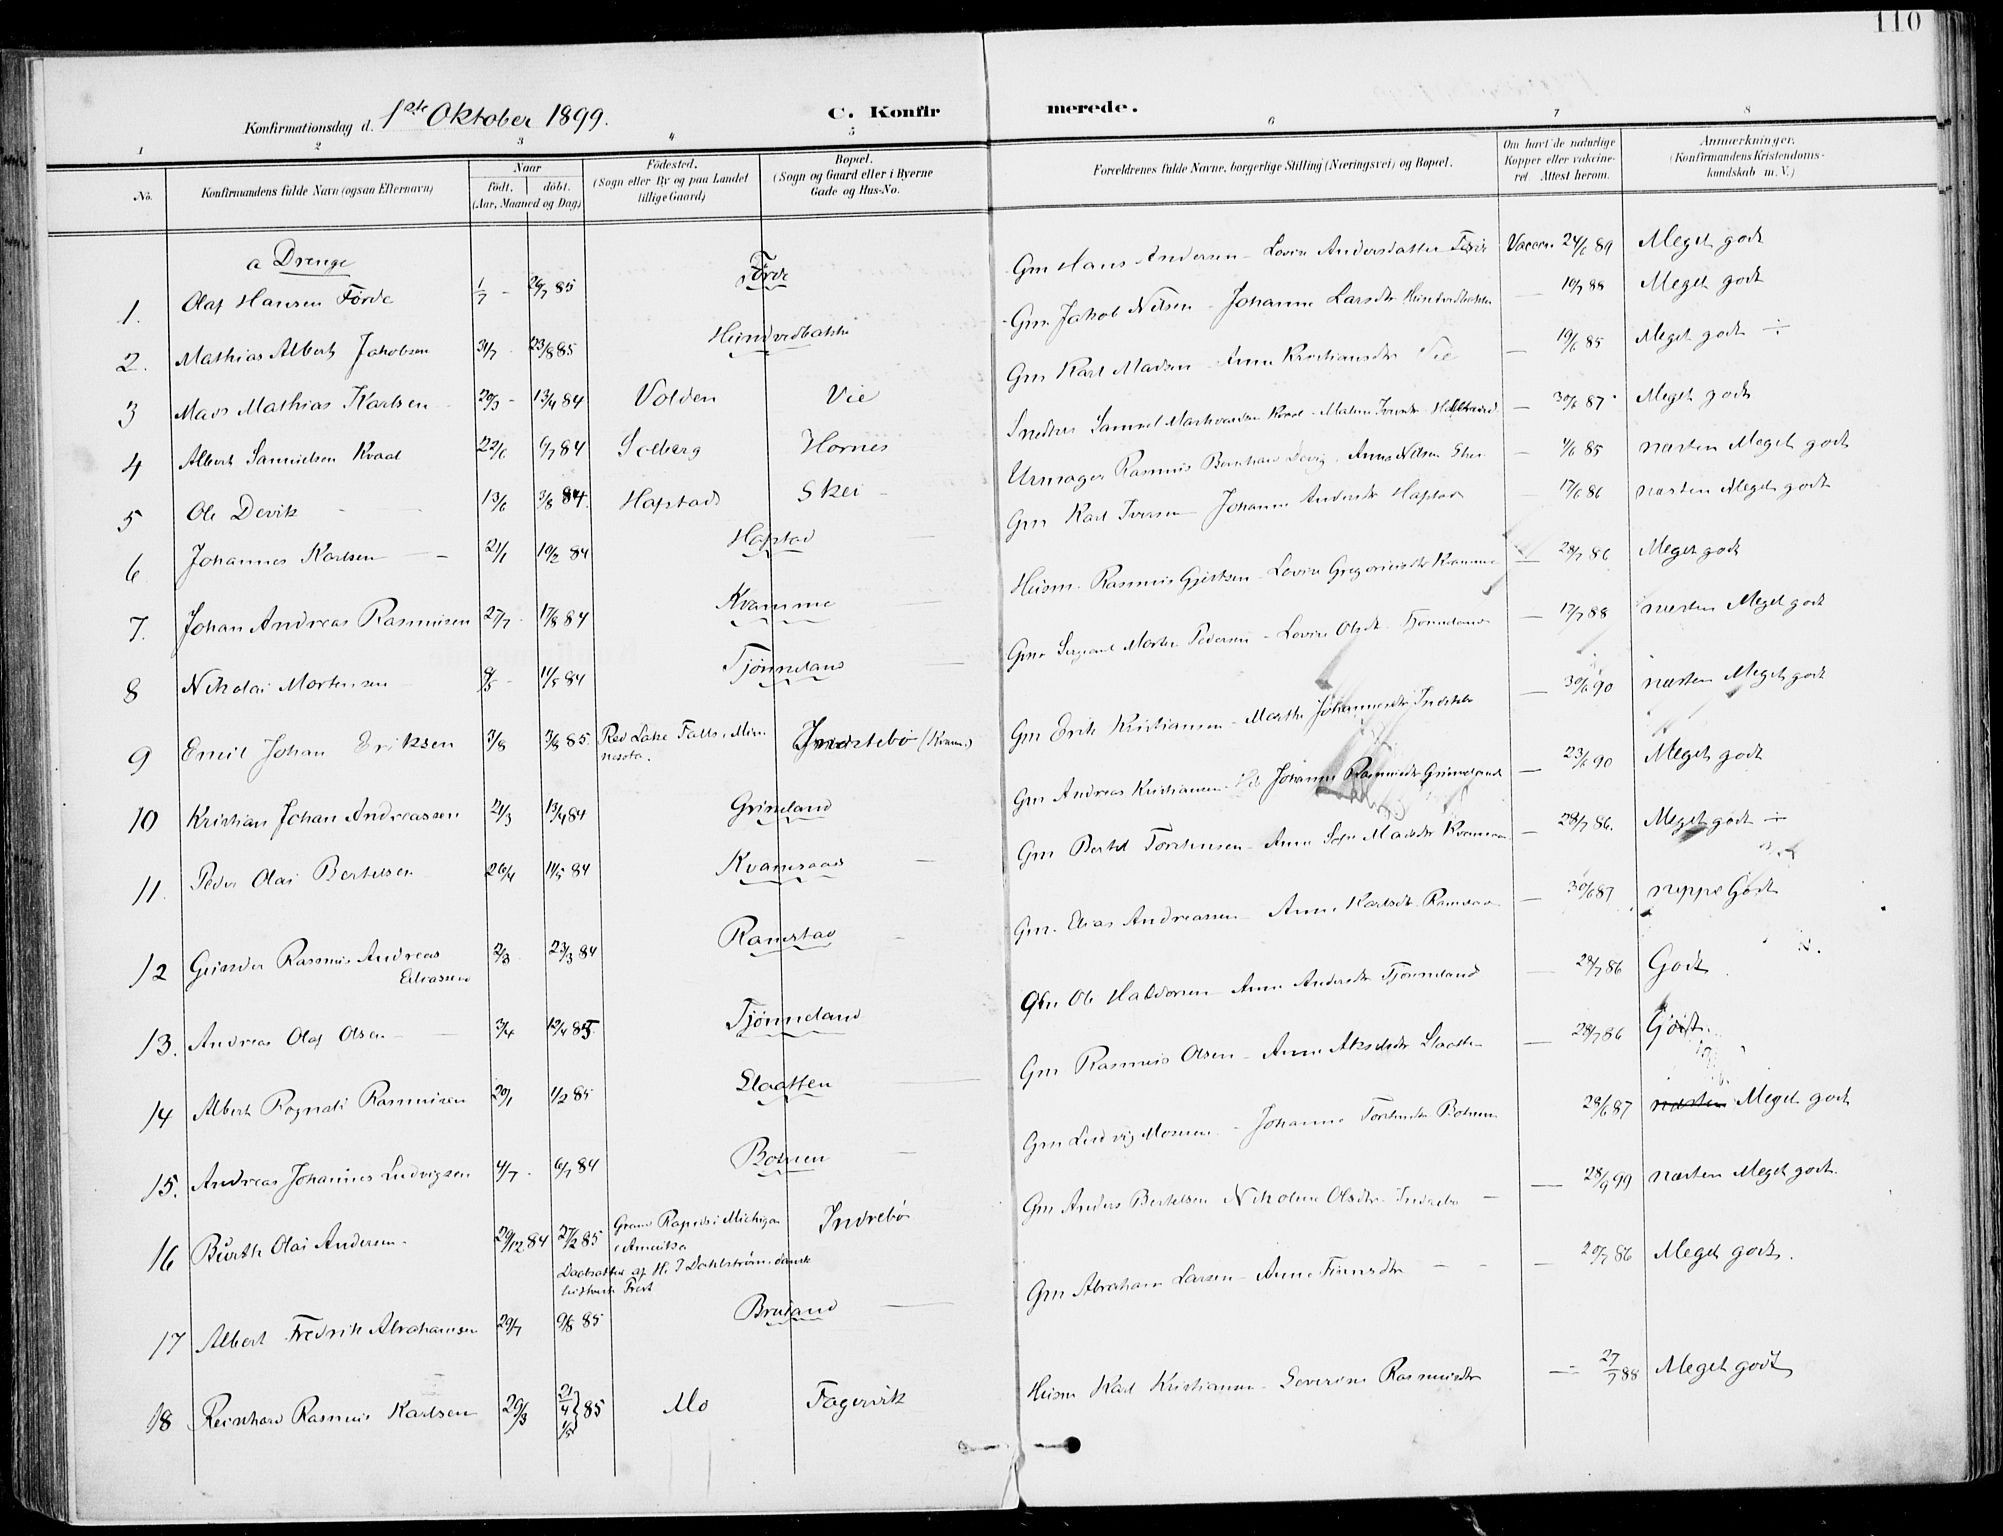 110
Konfirmationsdag d. 1ste Oktober 1899.
C. Konfirmerede.
1 2 3 4 5 6 7 8
No.
Konfirmandens fulde Navn (ogsaa Efternavn)
Naar
født. døbt.
(Aar, Maaned og Dag)
Fødested.
(Sogn eller By og paa Landet
tillige Gaard)
Bopæl.
(Sogn og Gaard eller i Byerne
Gade og Hus-No.
Forældrenes fulde Navne, borgerlige Stilling (Næringsvei) og Bopæl.
Om havt de naturlige
Kopper eller vaccine-
ret Attest herom.
Anmærkninger.
(Konfirmandens Kristendoms-
kundskab m. V.)
a Drenge
1. Olaf Hansen Førde 1/7 - 26/7 85 Førde Gm Hans Andersen - Lovise Andersdatter Førde Vaccin. 24/6 89 Meget godt
2. Mathias Albert Jakobsen 31/7 - 23/8 85 Hundvedbakke Gm Jakob Nilsen - Johanne Larsdtr Hundvedbakke — 19/7 88 Meget godt
3 Mads Mathias Karlsen 20/3 - 13/4 84 Volden Vie Gm Karl Madsen - Anne Kristiansdtr Vie — 19/6 85 Meget godt ÷
4 Albert Samuelsen Kvaal 22/6 6/7 84 Solberg Hornes Samuel Kvaal - — 30/6 87 Meget godt
5 Ole Devik 13/6 3/8 84. Hafstad Skei Urmager Rasmus Bernhard Devig, Anne Nilsen Skei — 4/6 85 næsten Meget godt
6 Johannes Karlsen 21/1 10/2 84 Hafstad Gm Karl Iversen Johanne Andersdtr Hafstad — 17/6 86 næsten Meget godt
7. Johan Andreas Rasmusen 27/7 - 17/8 84 Kvamme Husm. Rasmus Gjertsen - Lovise Gregoriusdtr Kvamme — 28/7 86 Meget godt
8 Nikolai Mortensen 8/5 - 11/5 84 Tjønneland Gm Sergeant Morten Pedersen - Lovise Olsdtr Tjønneland — 17/7 88 næsten Meget godt
9 Emil Johan Eriksen 3/8 3/8 85. Red Lake Falls, Min
nesota. Indrebø (Kvam.) Gm Erik Kristiansen - Marthe Johannesdtr Indrebø — 30/6 90 næsten Meget godt
10 Kristian Johan Andreassen 21/3 13/4 84 Grimeland Gm Andreas Kristiansen Johanne Rasmusdtr Grimeland — 23/6 90 Meget godt
11. Peder Olai Bertelsen 26/4 11/5 84 Kvamsaas Gm Bertel Torstensen - Anne Sofie Madsdtr Kvamsaas — 28/7 86. Meget godt ÷
12 Gunder Rasmus Andreas
Eliassen 2/3 23/3 84 Ramstad Gm. Elias Andreassen - Anne Karlsdtr Ramstad — 30/6 87 neppe Godt
13. Andreas Olaf Olsen 3/4 12/4 85 Tjønneland Gm Ole Haldorsen - Anne Andersdtr Tjønneland — 28/7 86 Godt
14 Albert Rognald Rasmusen 20/1 1/2 85 Slaatten Gm Rasmus Olsen - Anne Akselsdtr Slaatten — 28/7 86 Godt.
15. Andreas Johannes Ludvigsen 4/7 - 6/7 84 Botnen Gm Ludvig Monsen - Johanne Torstensdtr Botnen 28/6 87 næsten Meget godt
16 Olai Andersen 29/12 84 27/2 85 Grand Rapids i Michigan
i Amerika Indrebø Gm Anders Bertelsen Nikoline Olsdtr Indrebø — 28/9 99 næsten Meget godt.
af H. J Dahlstrøm, dansk
luthersk Prest
17 Albert Fredrik Abrahamsen 29/7 9/8 85 Bruland Gm Abraham Larsen - Anne Finnsdtr — 20/7 86 Meget godt.
18 Reinhard Rasmus Karlsen 29/3 21/4 1/5 } 85 Mo Fagervik Husm Karl Kristiansen - Severine Rasmusdtr — 27/7 88 Meget godt